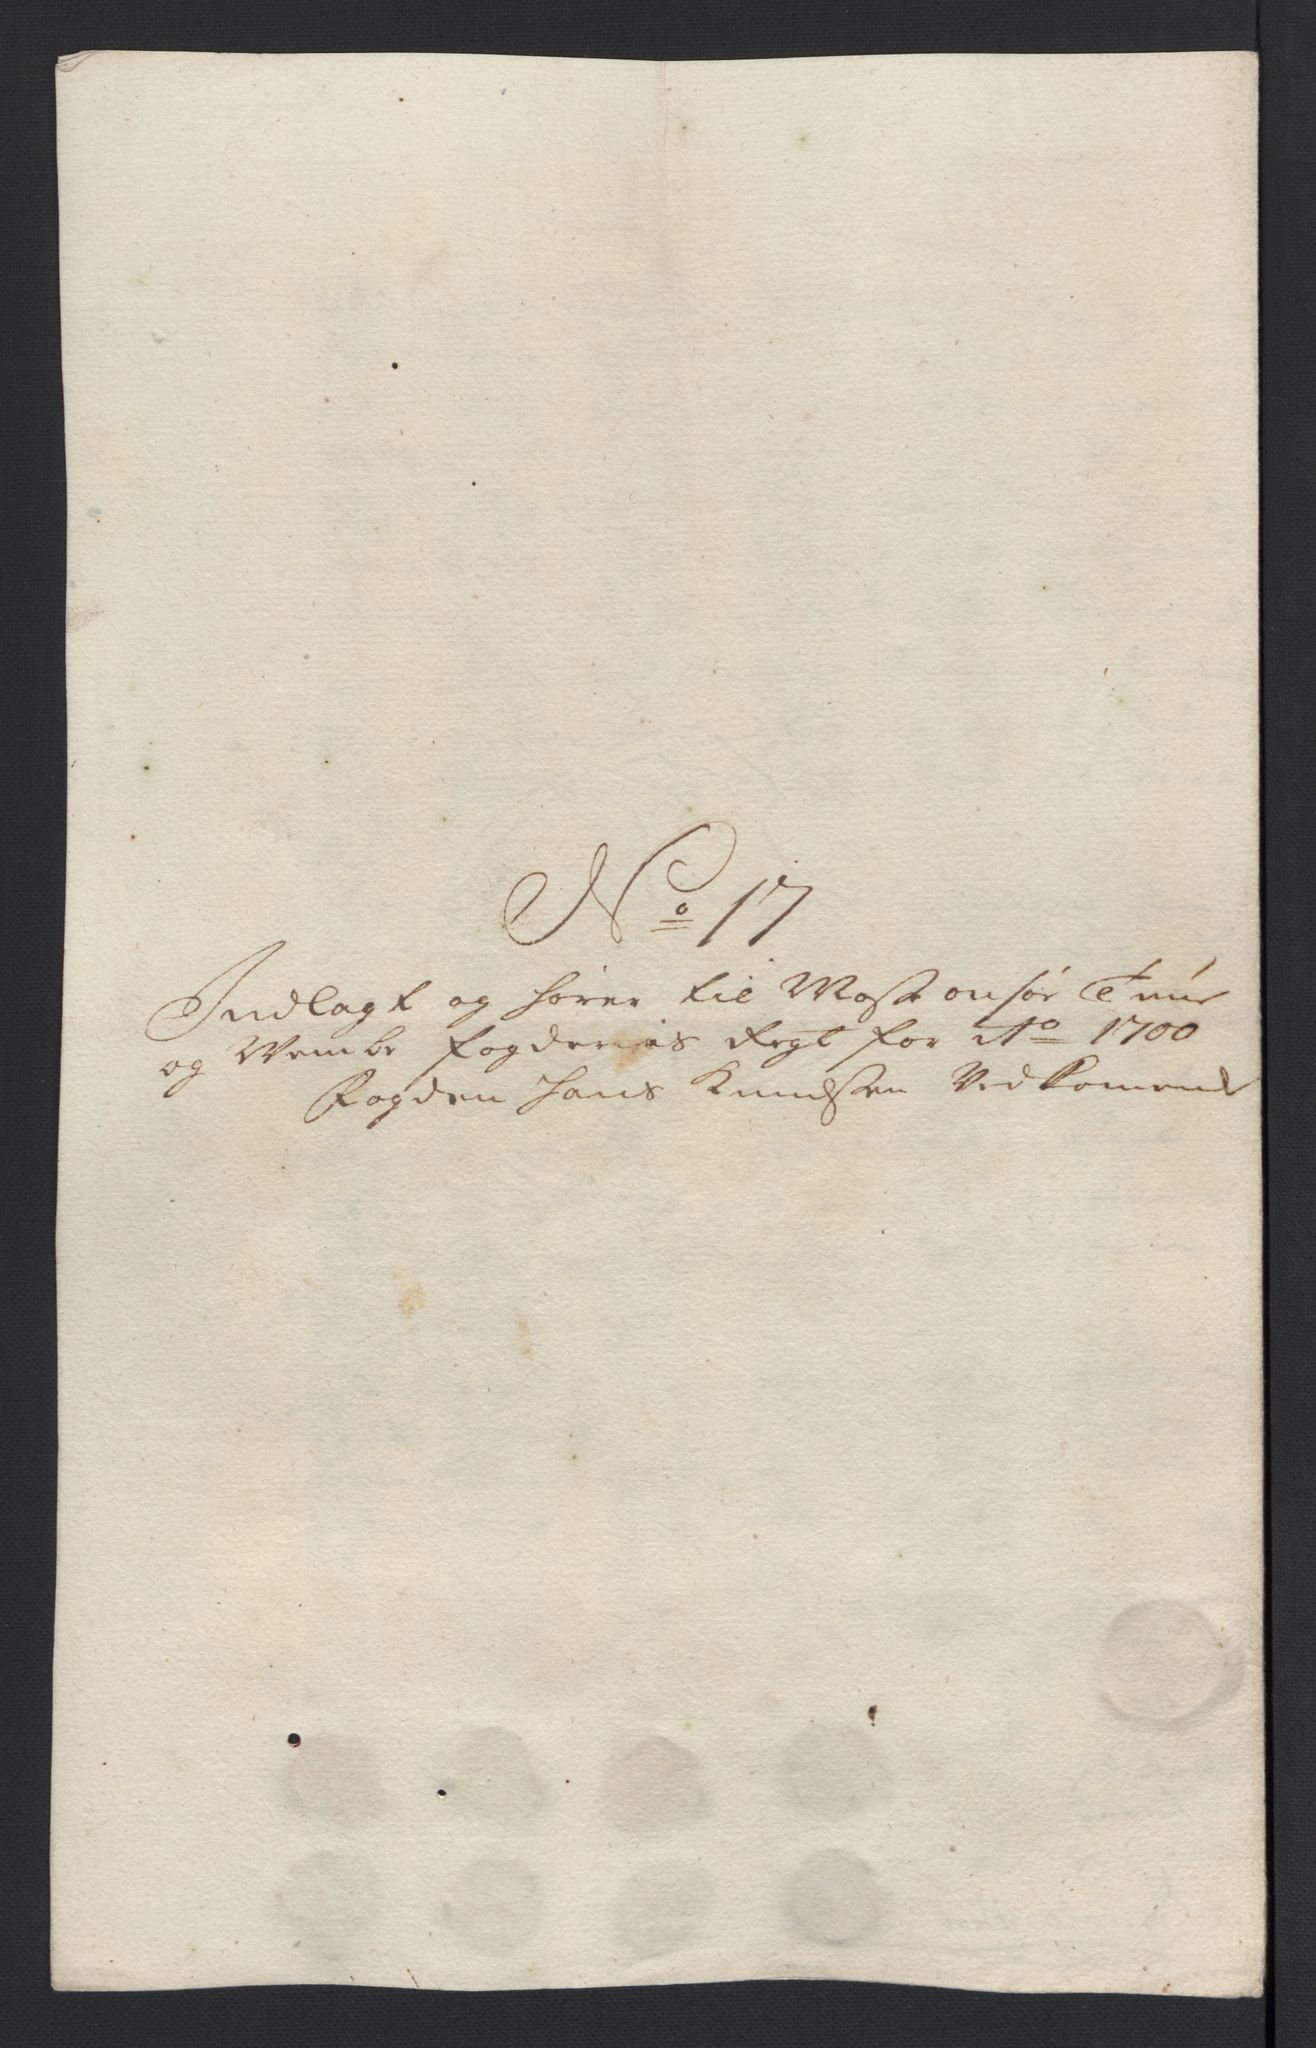 No 17
Indlagt og hører til Moss onsøe Tune
og Wembe fogderies Regt for Ao 1700
Fogden Hans Knudsen Vedkomend